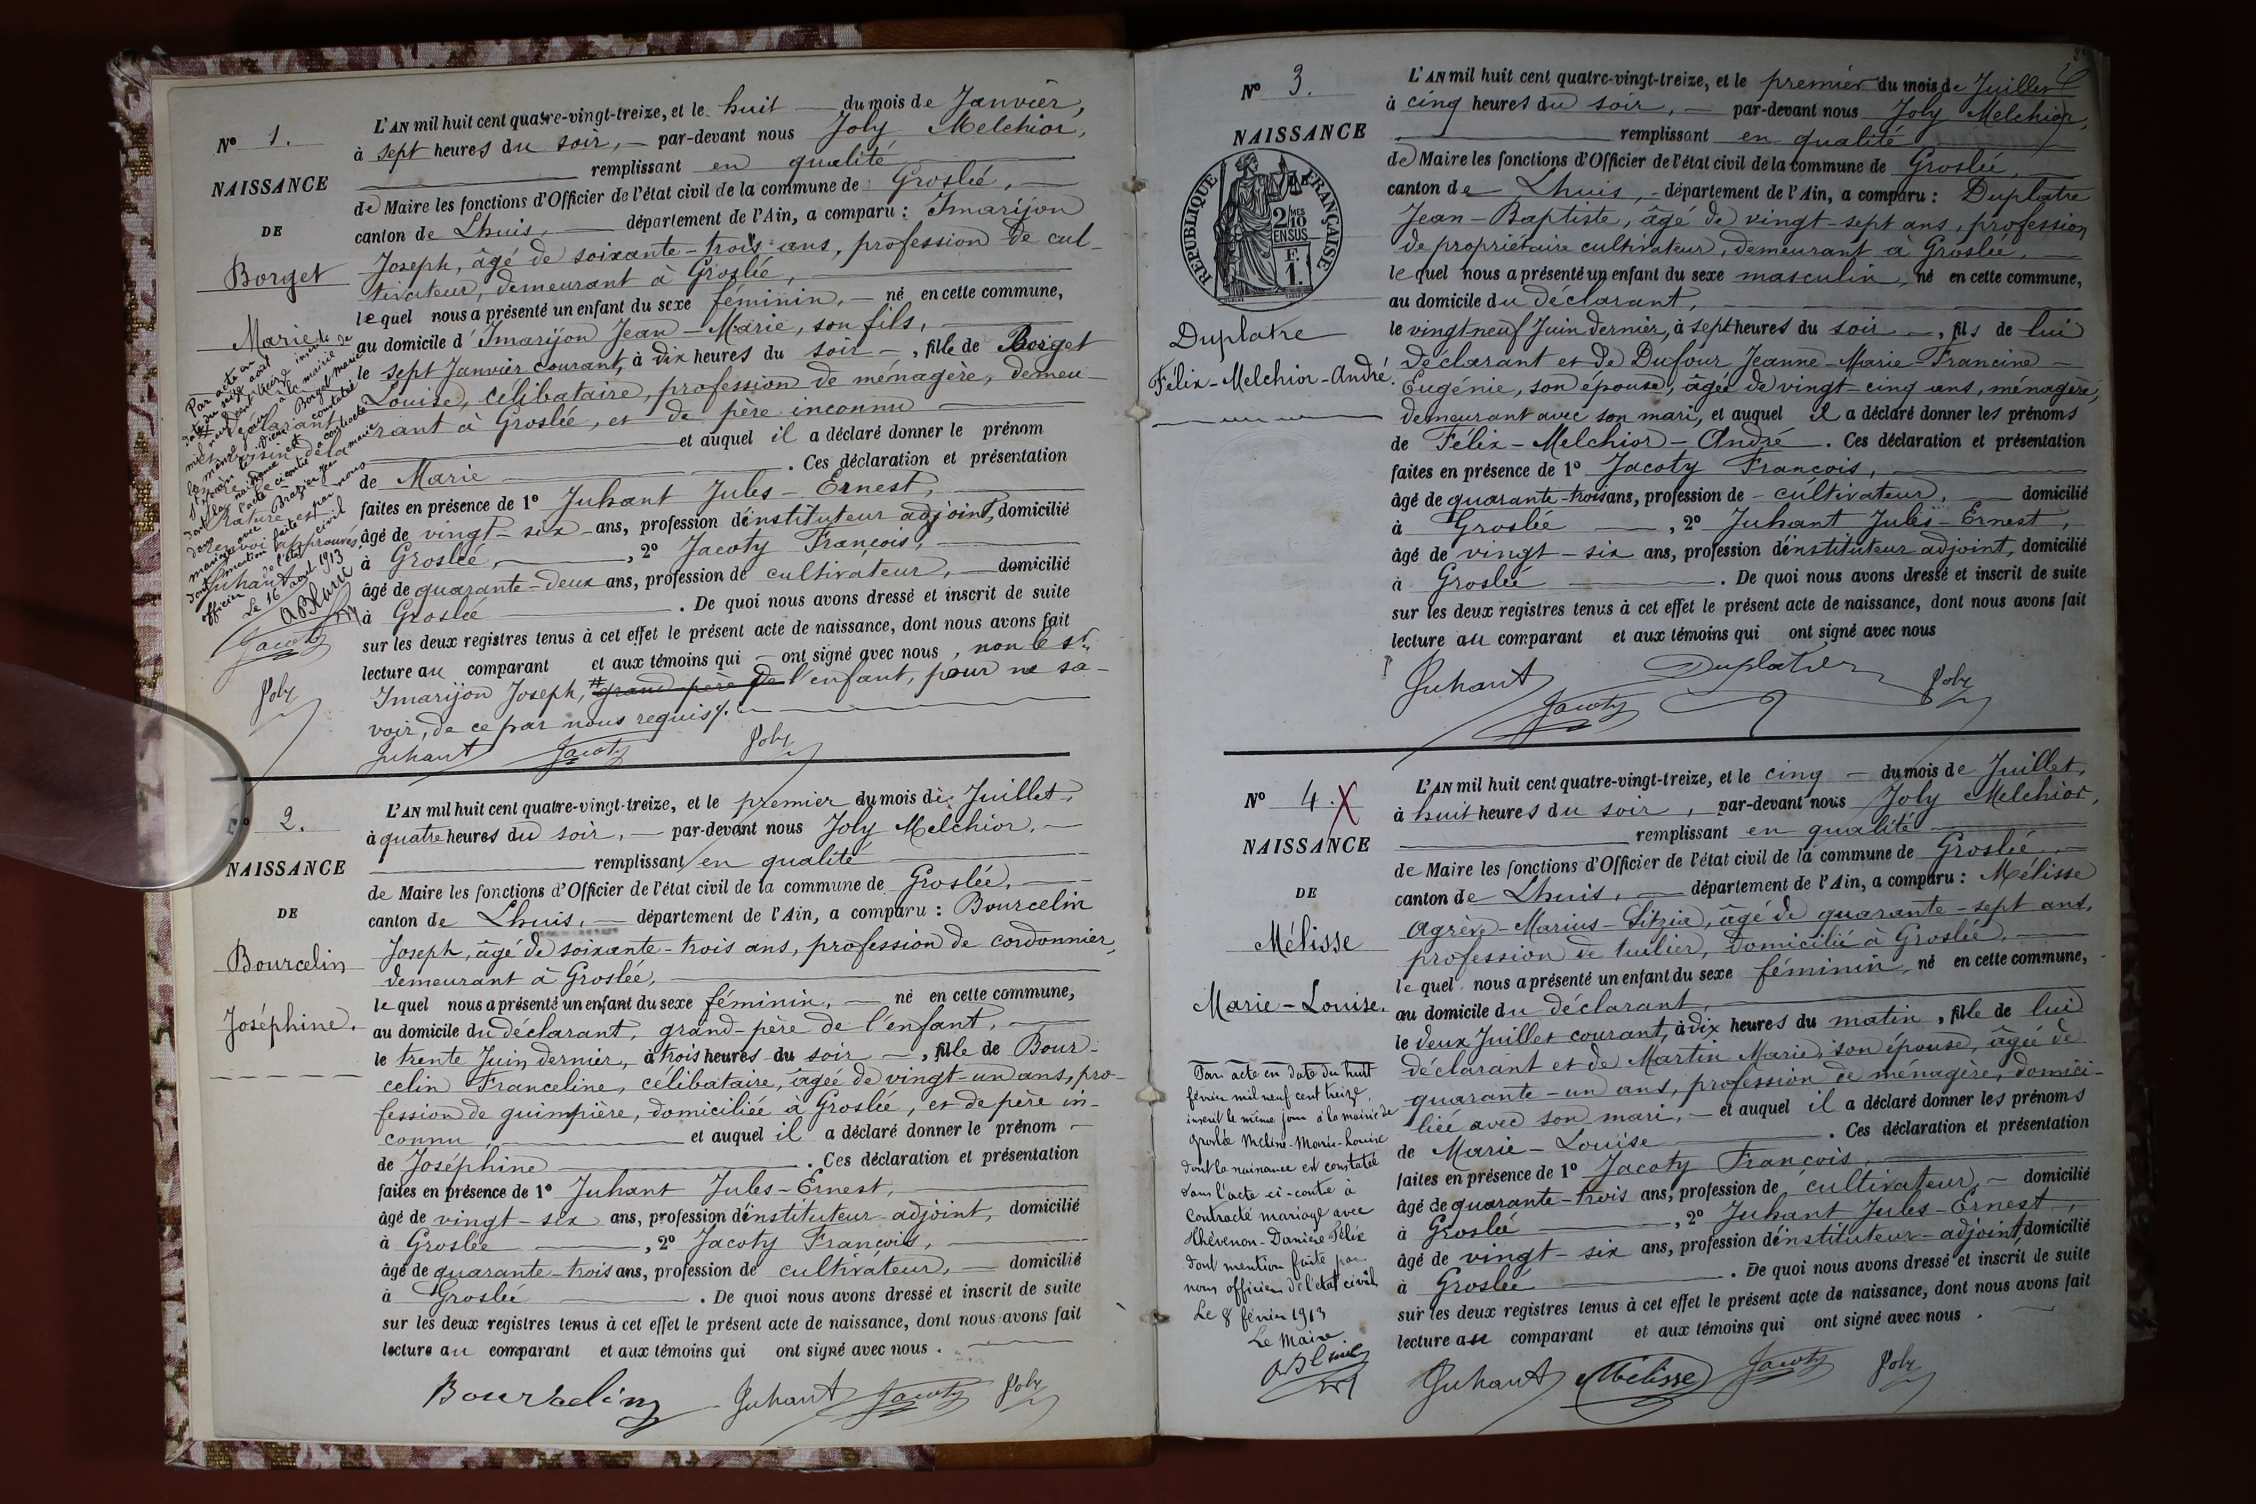 N° 1.
NAISSANCE
DE
Borget
Marie
L'AN mil huit cent quatre-vingt-treize, et le huit du mois de Janvier,
à sept heures du soir, par-devant nous Joly Melchior,
remplissant en qualité
de Maire les fonctions d'Officier de l'état civil de la commune de Groslée,
canton de Lhuis, département de l'Ain, a comparu : Imarijon
Joseph, âgé de soixante-trois ans, profession de cul-
tivateur, demeurant à Groslée,
lequel nous a présenté un enfant du sexe féminin, né en cette commune,
au domicile d'Imarijon Jean-Marie, son fils,
le sept Janvier courant, à dix heures du soir, fille de Borget
Louise, célibataire, profession de ménagère, demeu-
rant à Groslée, et de père inconnu
et auquel il a déclaré donner le prénom
de Marie. Ces déclaration et présentation
faites en présence de 1° Juhant Jules-Ernest,
âgé de vingt-six ans, profession d'instituteur adjoint, domicilié
à Groslée, 2° Jacoty François,
âgé de quarante-deux ans, profession de cultivateur, domicilié
à Groslée. De quoi nous avons dressé et inscrit de suite
sur les deux registres tenus à cet effet le présent acte de naissance, dont nous avons fait
lecture au comparant et aux témoins qui ont signé avec nous, non le st.
Imarijon Joseph, grand-père de l'enfant, pour ne sa-
voir, de ce par nous requis.
Juhant Jacoty Joly
Par acte en
date du seize août
mil neuf cent treize inscrit
le même jour à la mairie de
Borget Marie
dont la naissance est constatée
dans l'acte ci-contre a contracté
mariage avec Brazier Jean Marie
dont mention faite par nous
officier de l'état civil
Le 16 août 1913
déclarant
rature
renvoi approuvés.
Juhant
Jacoty
Joly
N° 2.
NAISSANCE
DE
Bourcelin
Joséphine.
L'AN mil huit cent quatre-vingt-treize, et le premier du mois de Juillet,
à quatre heures du soir, par-devant nous Joly Melchior,
remplissant en qualité
de Maire les fonctions d'Officier de l'état civil de la commune de Groslée,
canton de Lhuis, département de l'Ain, a comparu : Bourcelin
Joseph, âgé de soixante-trois ans, profession de cordonnier,
demeurant à Groslée,
lequel nous a présenté un enfant du sexe féminin, né en cette commune,
au domicile du déclarant, grand-père de l'enfant,
le trente Juin dernier, à trois heures du soir, fille de Bour-
celin Franceline, célibataire, âgée de vingt-un ans, pro-
fession de guimpière, domiciliée à Groslée, et de père in-
connu, et auquel il a déclaré donner le prénom
de Joséphine. Ces déclaration et présentation
faites en présence de 1° Juhant Jules-Ernest,
âgé de vingt-six ans, profession d'instituteur adjoint, domicilié
à Groslée, 2° Jacoty François,
âgé de quarante-trois ans, profession de cultivateur, domicilié
à Groslée. De quoi nous avons dressé et inscrit de suite
sur les deux registres tenus à cet effet le présent acte de naissance, dont nous avons fait
lecture au comparant et aux témoins qui ont signé avec nous.
Bourcelin Juhant Jacoty Joly
N° 3.
NAISSANCE
RÉPUBLIQUE FRANÇAISE
2/10 MES
EN SUS
F.
1.
Duplatre
Félix-Melchior-André.
L'AN mil huit cent quatre-vingt-treize, et le premier du mois de Juillet
à cinq heures du soir, par-devant nous Joly Melchior,
remplissant en qualité
de Maire les fonctions d'Officier de l'état civil de la commune de Groslée,
canton de Lhuis, département de l'Ain, a comparu : Duplatre
Jean-Baptiste, âgé de vingt-sept ans, profession
de propriétaire cultivateur, demeurant à Groslée,
lequel nous a présenté un enfant du sexe masculin, né en cette commune,
au domicile du déclarant,
le vingt neuf Juin dernier, à sept heures du soir, fils de lui
déclarant et de Dufour Jeanne-Marie-Francine-
Eugénie, son épouse, âgée de vingt-cinq ans, ménagère,
demeurant avec son mari, et auquel il a déclaré donner les prénoms
de Félix-Melchior-André. Ces déclaration et présentation
faites en présence de 1° Jacoty François,
âgé de quarante-trois ans, profession de cultivateur, domicilié
à Groslée, 2° Juhant Jules-Ernest,
âgé de vingt-six ans, profession d'instituteur adjoint, domicilié
à Groslée. De quoi nous avons dressé et inscrit de suite
sur les deux registres tenus à cet effet le présent acte de naissance, dont nous avons fait
lecture au comparant et aux témoins qui ont signé avec nous
Juhant Jacoty Duplatre Joly
N° 4. X
NAISSANCE
DE
Mélisse
Marie-Louise.
L'AN mil huit cent quatre-vingt-treize, et le cinq du mois de Juillet,
à huit heures du soir, par-devant nous Joly Melchior,
remplissant en qualité
de Maire les fonctions d'Officier de l'état civil de la commune de Groslée
canton de Lhuis, département de l'Ain, a comparu : Mélisse
Agrève-Marius-, âgé de quarante-sept ans,
profession de tuilier, domicilié à Groslée,
lequel nous a présenté un enfant du sexe féminin, né en cette commune,
au domicile du déclarant,
le deux Juillet courant, à dix heures du matin, fille de lui
déclarant et de Martin Marie, son épouse, âgée de
quarante-un ans, profession de ménagère, domici-
liée avec son mari, et auquel il a déclaré donner les prénoms
de Marie-Louise. Ces déclaration et présentation
faites en présence de 1° Jacoty François,
âgé de quarante-trois ans, profession de cultivateur, domicilié
à Groslée, 2° Juhant Jules-Ernest,
âgé de vingt-six ans, profession d'instituteur-adjoint, domicilié
à Groslée. De quoi nous avons dressé et inscrit de suite
sur les deux registres tenus à cet effet le présent acte de naissance, dont nous avons fait
lecture au comparant et aux témoins qui ont signé avec nous.
Juhant Mélisse Jacoty Joly
Par acte en date du huit
février mil neuf cent treize,
inscrit le même jour à la mairie de
Groslée Mélisse-Marie-Louise
dont la naissance est constatée
dans l'acte ci-contre à
contracté mariage avec
Thévenon-Danière Félix
dont mention faite par
nous officier de l'état civil
Le 8 février 1913
Le Maire